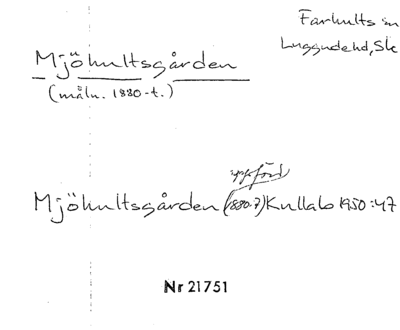 Farhults sn
Luggude hd, Sk
Mjöhultsgården
(måln. 1880-t.)
uppförd
Mjöhultsgården (1880-t) Kullabo 1950:47
Nr 21751